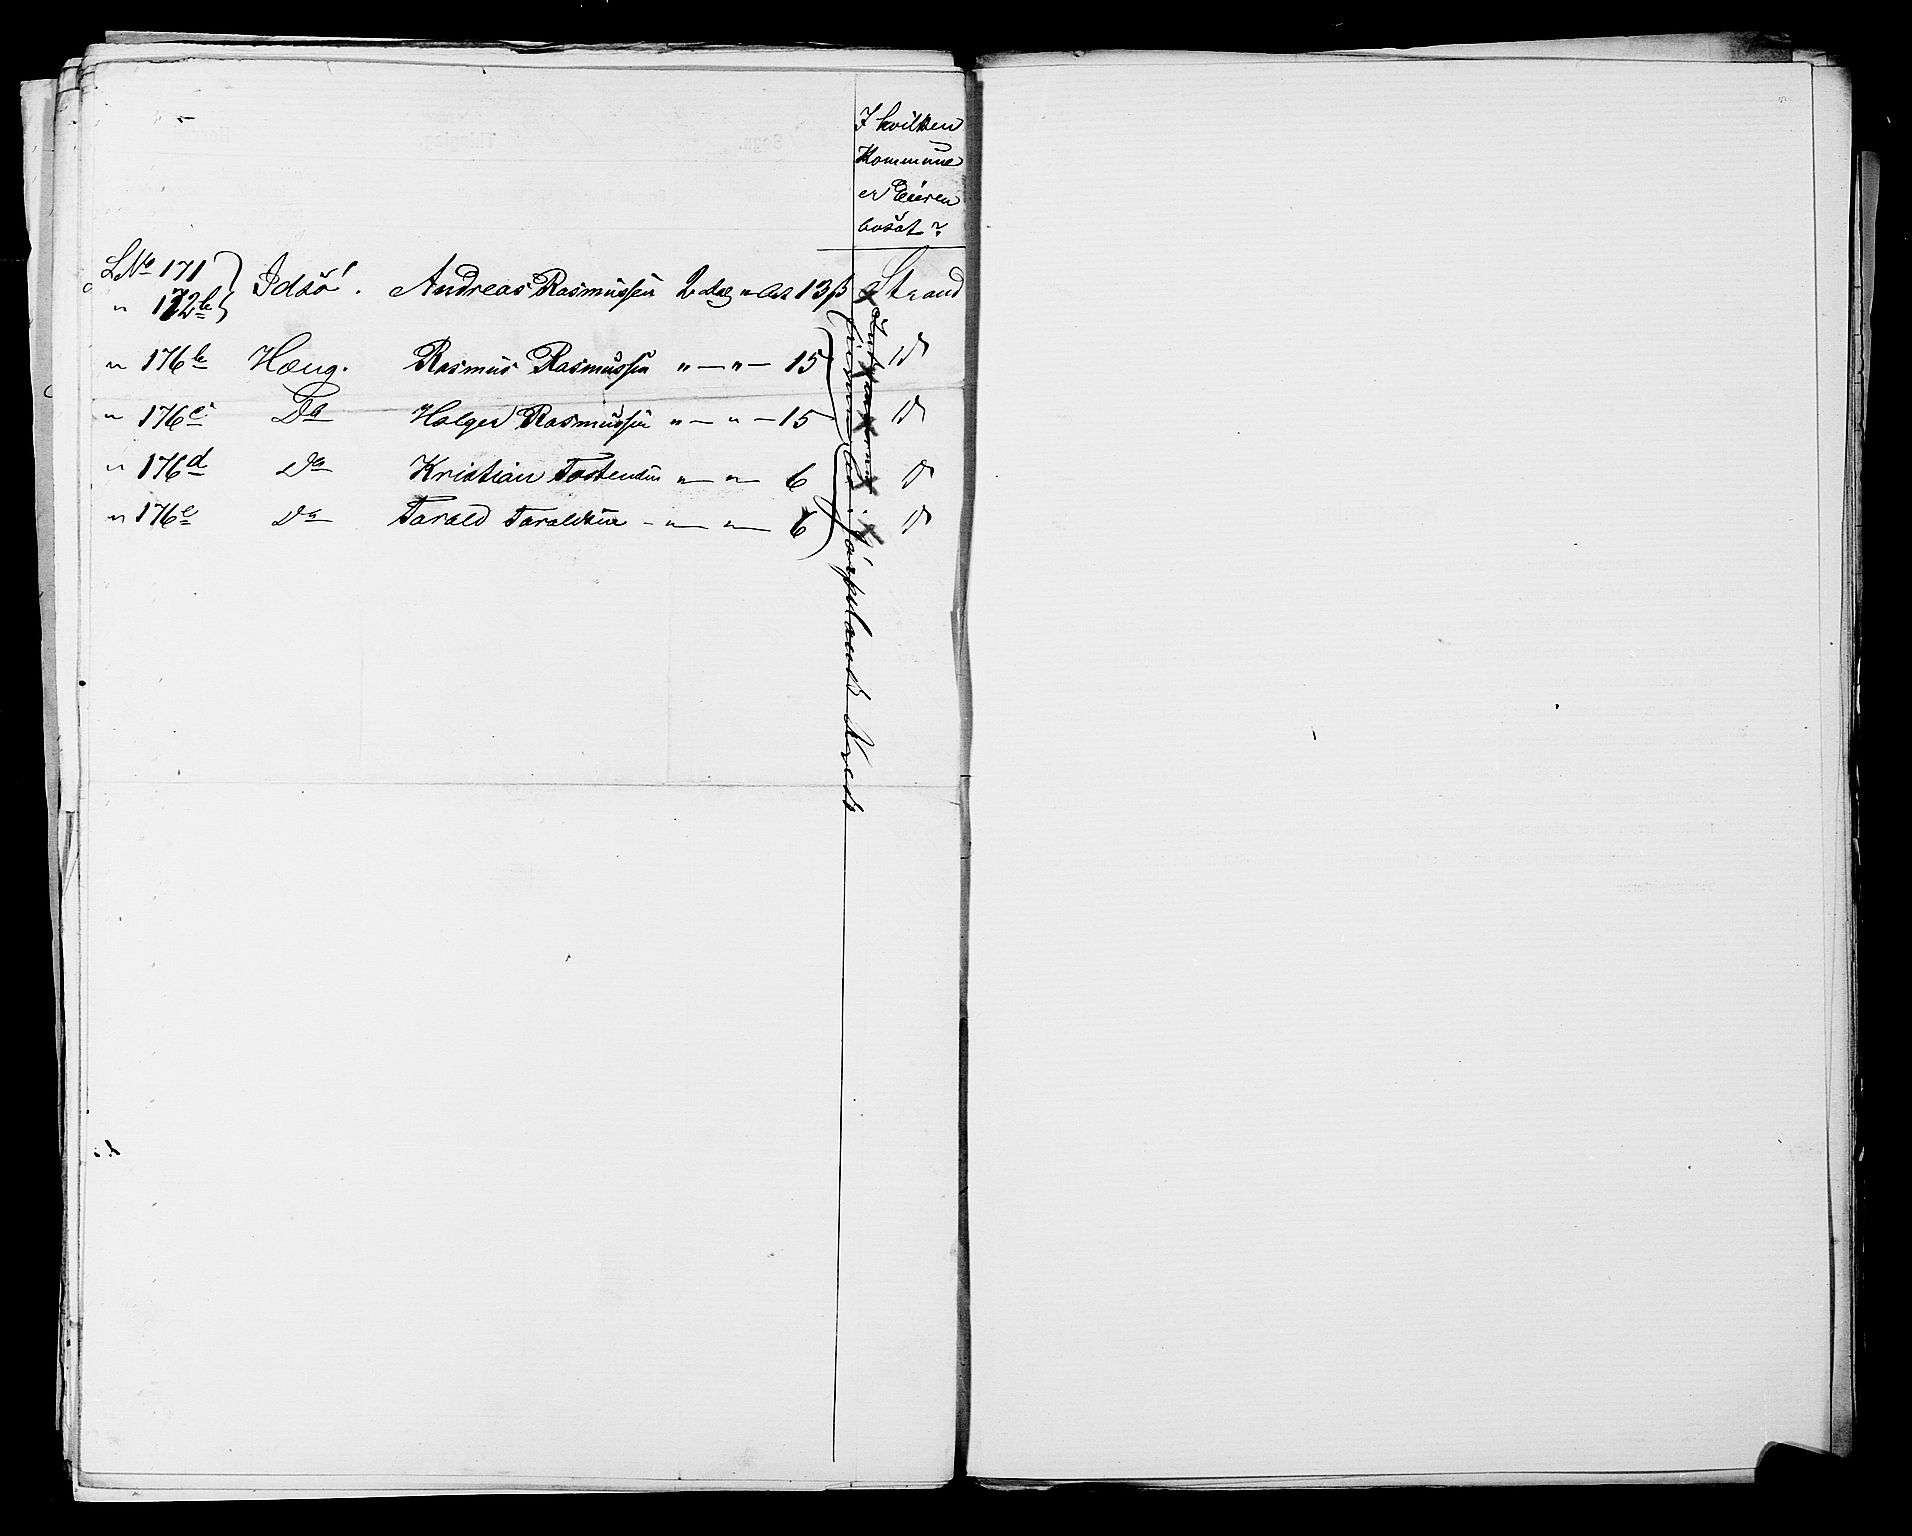 I hvilken
Kommune
er Eieren
bosat?
LNo 171
" 172b } Idsö. Andreas Rasmussen 2 dlr " Ort 13 ß Strand
" 176b Hæng. Rasmus Rasmussen " — " — 15 D
" 176c Do Holger Rasmussen " — " — 15 D
" 176d Do Kristian Tostensen " — " — 6 D
" 176e Do Tarald Taraldsen " — " — 6 D
Jörpelands Kreds